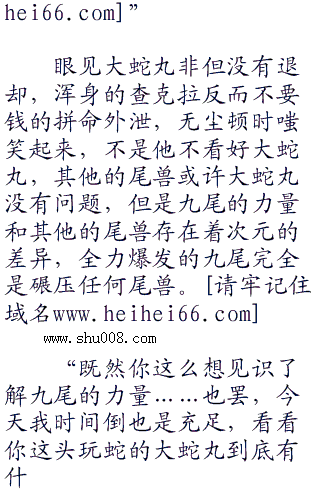 hei66.com]”
眼见大蛇丸非但没有退
却，浑身的查克拉反而不要
钱的拼命外泄，无尘顿时嗤
笑起来，不是他不看好大蛇
丸，其他的尾兽或许大蛇丸
没有问题，但是九尾的力量
和其他的尾兽存在着次元的
差异，全力爆发的九尾完全
是碾压任何尾兽。[请牢记住
域名www.heihei66.com]
www.shu008.com
“既然你这么想见识了
解九尾的力量……也罢，今
天我时间倒也是充足，看看
你这头玩蛇的大蛇丸到底有
什